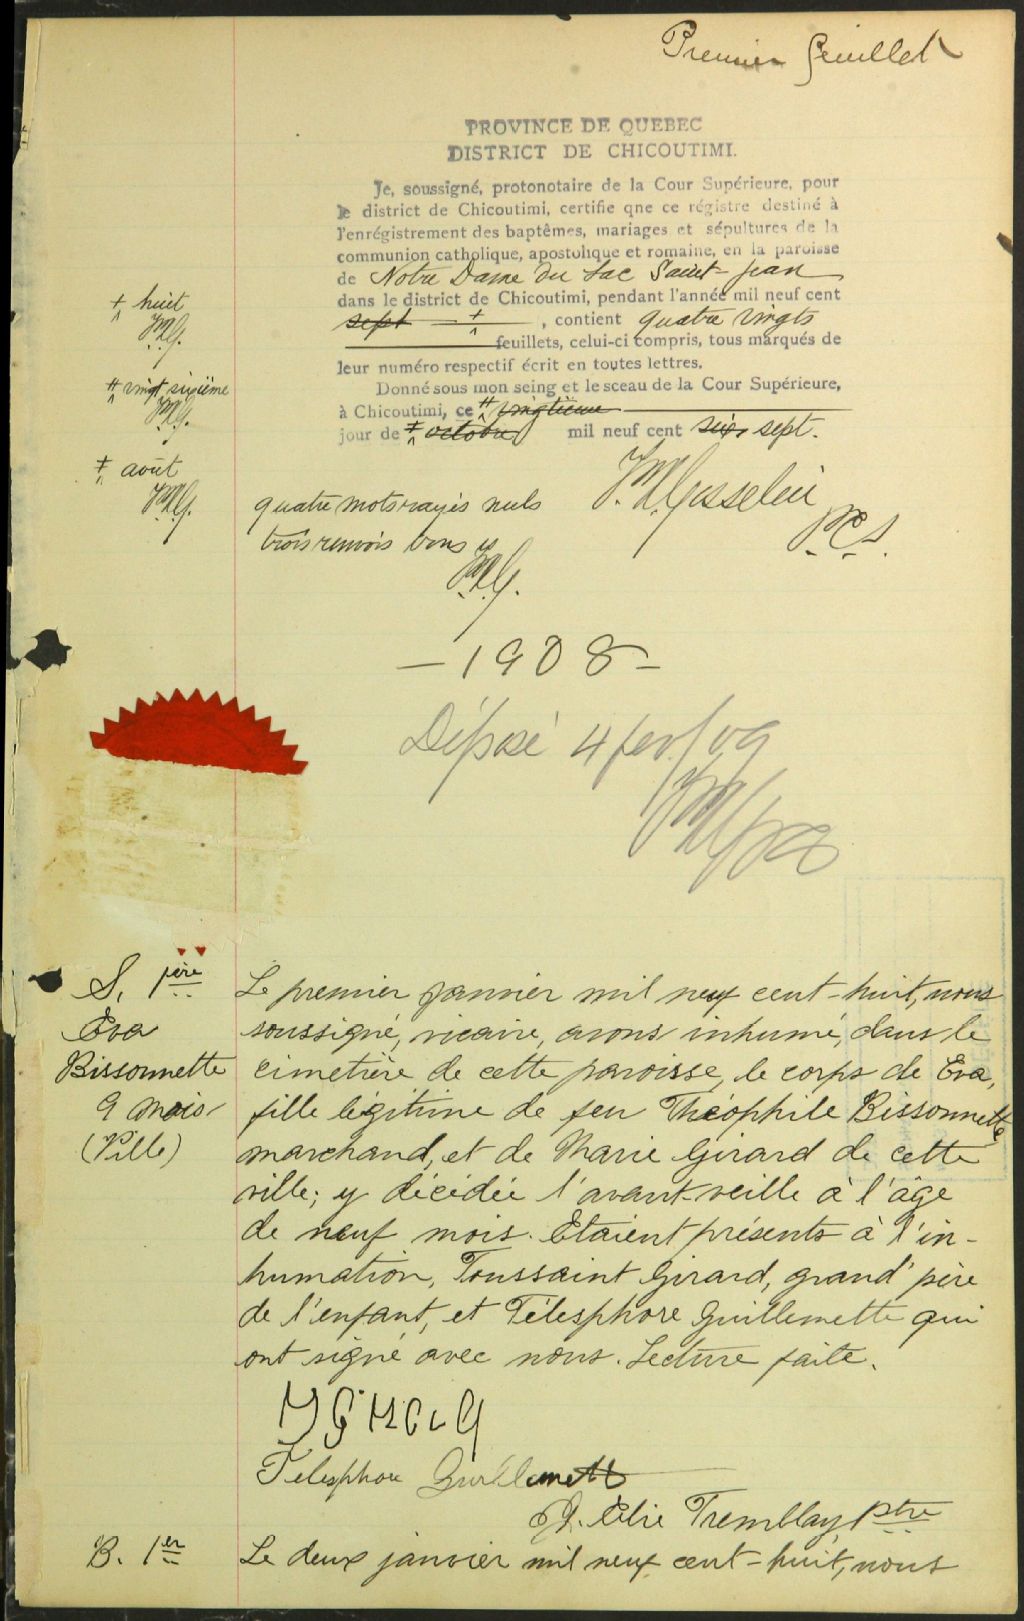 Premier feuillet
PROVINCE DE QUEBEC
DISTRICT DE CHICOUTIMI.
Je, soussigné, protonotaire de la Cour Supérieure, pour
le district de Chicoutimi, certifie qne ce régistre destiné à
l'enrégistrement des baptêmes, mariages et sépultures de la
communion catholique, apostolique et romaine, en la paroisse
de Notre Dame du Lac Saint-Jean
dans le district de Chicoutimi, pendant l'année mil neuf cent
sept + , contient quatre vingts
feuillets, celui-ci compris, tous marqués de
leur numéro respectif écrit en toutes lettres.
Donné sous mon seing et le sceau de la Cour Supérieure,
à Chicoutimi, ce # vingtième
jour de ‡ octobre mil neuf cent six sept.
+ huit
# vingt sixième
‡ août
quatre mots rayés nuls
trois renvois bons
P.C.S.
- 1908 -
Déposé 4 fev/09
S. 1ère
Éva
Bissonnette
9 mois
(Ville)
Le premier janvier mil neuf cent-huit, nous
soussigné, vicaire, avons inhumé, dans le
cimetière de cette paroisse, le corps de Eva,
fille légitime de feu Théophile Bissonnette
marchand, et de Marie Girard de cette
ville; y décédée l'avant-veille à l'âge
de neuf mois. Etaient présents à l'in-
humation, Toussaint Girard, grand'père
de l'enfant, et Télesphore Guillemette qui
ont signé avec nous. Lecture faite.
Telesphore Guillemette
Elie Tremblay, Ptre
B. 1er
Le deux janvier mil neuf cent-huit, nous